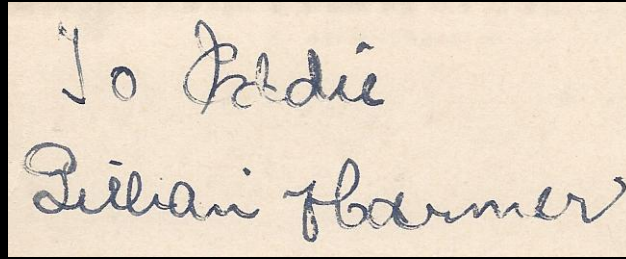 To Eddie
Lillian Harmer